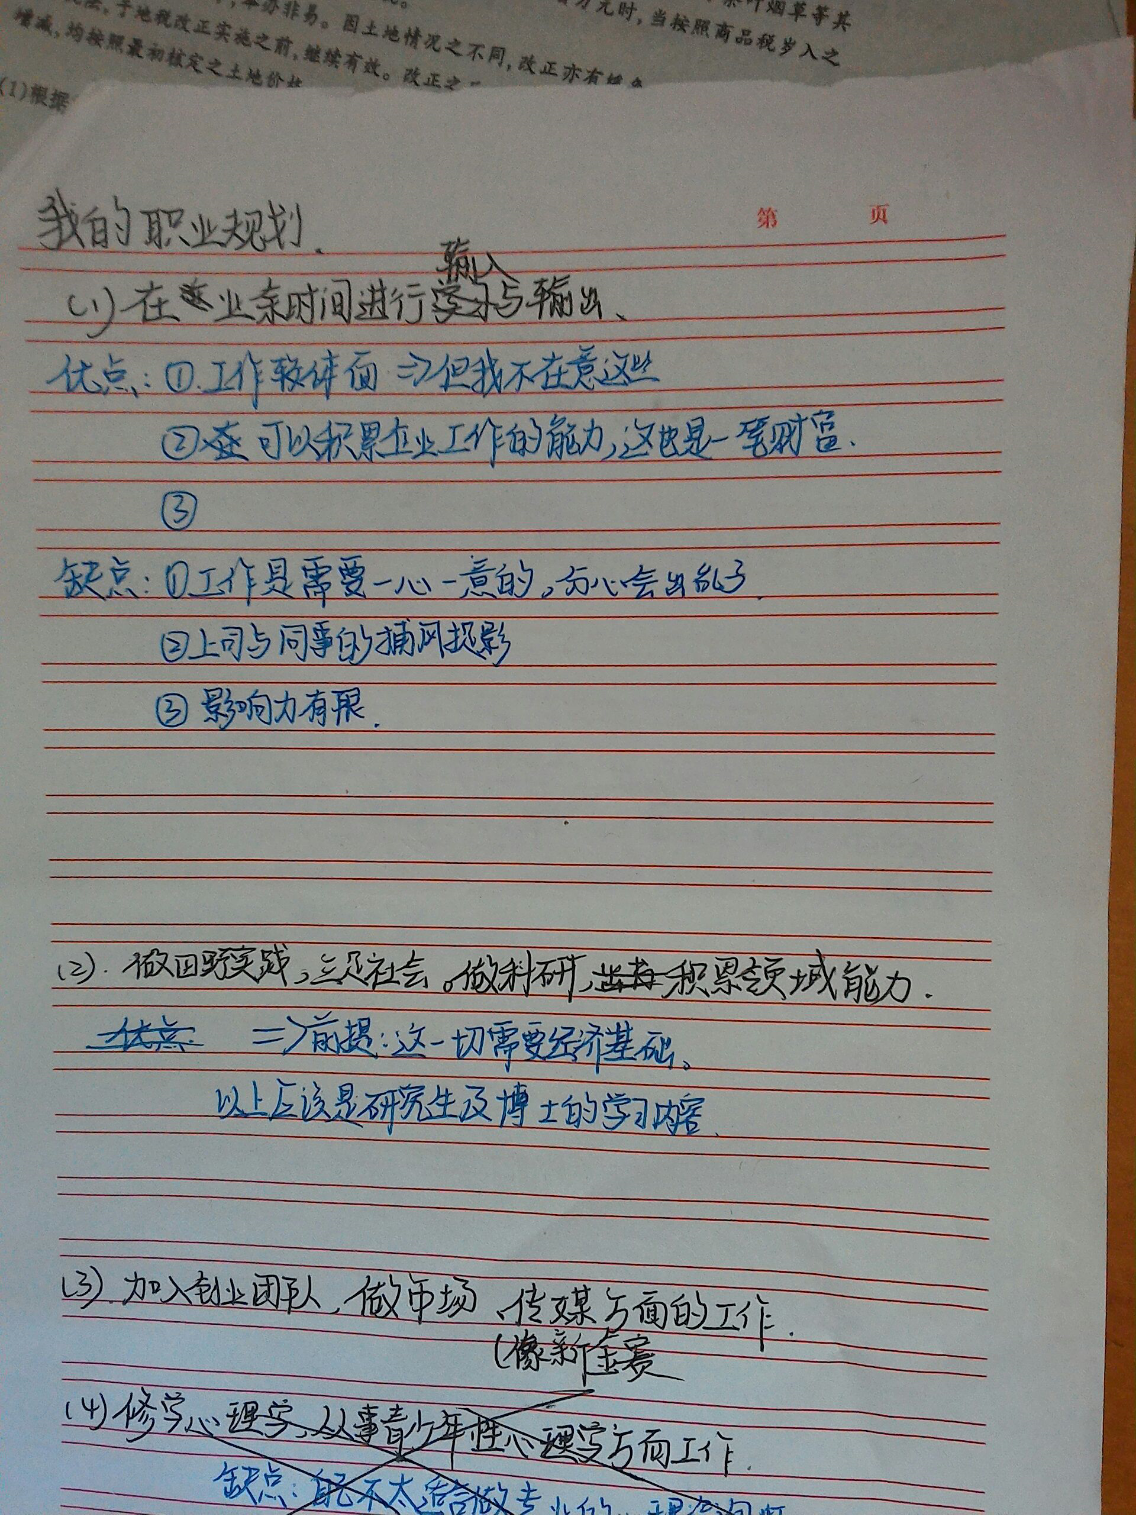 子地税改正实施之前，继续有效。因土地情况之不同，改正亦有
万元时，当按照商品税岁入之
茶叶烟草等其
增减，均按照最初核定之土地价
改正之
(1)根据
第 页
我的职业规划.
输入
(1)在业余时间进行学习与输出、
优点：①.工作较体面 ⇒但我不在意这些
②在 可以积累企业工作的能力，这也是一笔财富.
③
缺点：①工作是需要一心一意的。分心会出乱子.
②上司与同事的捕风捉影
③ 影响力有限.
(2). 做田野实践，立足社会。做科研，积累领域能力.
优点. ⇒前提：这一切需要经济基础。
以上应该是研究生及博士的学习内容.
(3). 加入创业团队，做市场、传媒方面的工作.
(像新金赛
(4)修学心理学，从事青少年性心理学方面工作.
缺点：自己不太适合做专业的